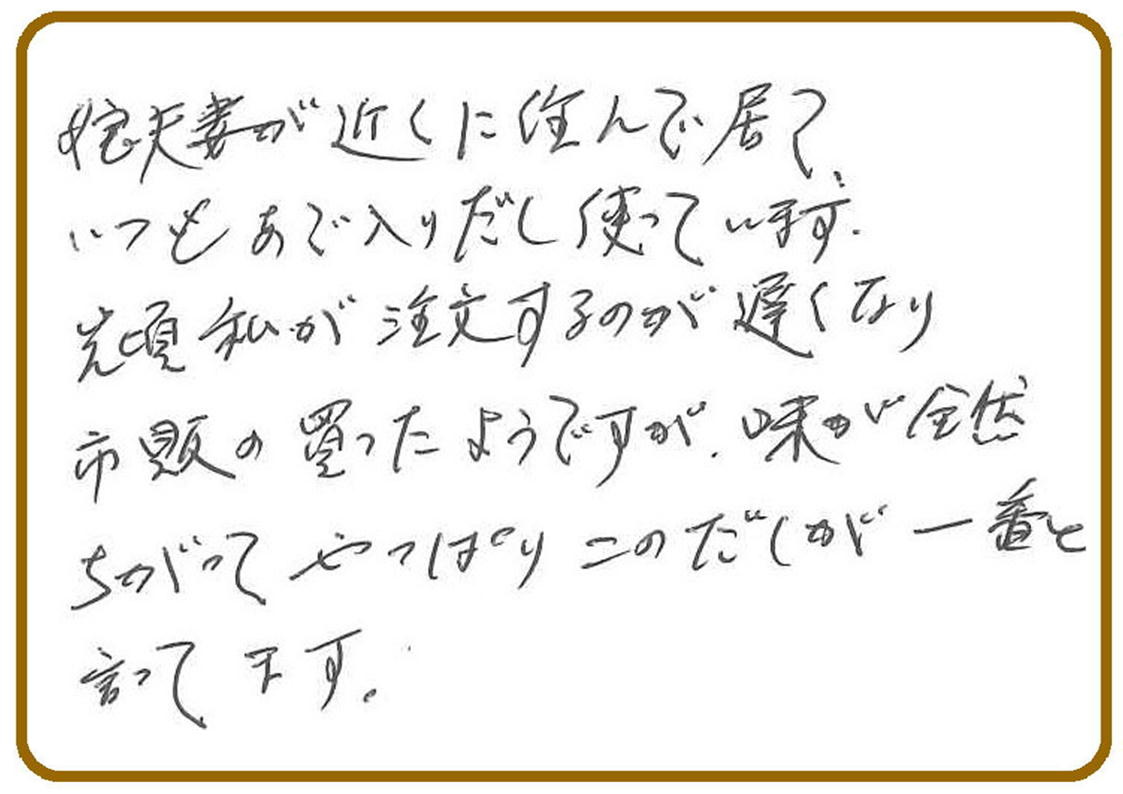 娘夫妻が近くに住んで居て、
いつもあご入りだし使っています.
先頃私が注文するのが遅くなり
市販の買ったようですが、味が全然
ちがってやっぱりこのだしが一番と
言ってます。